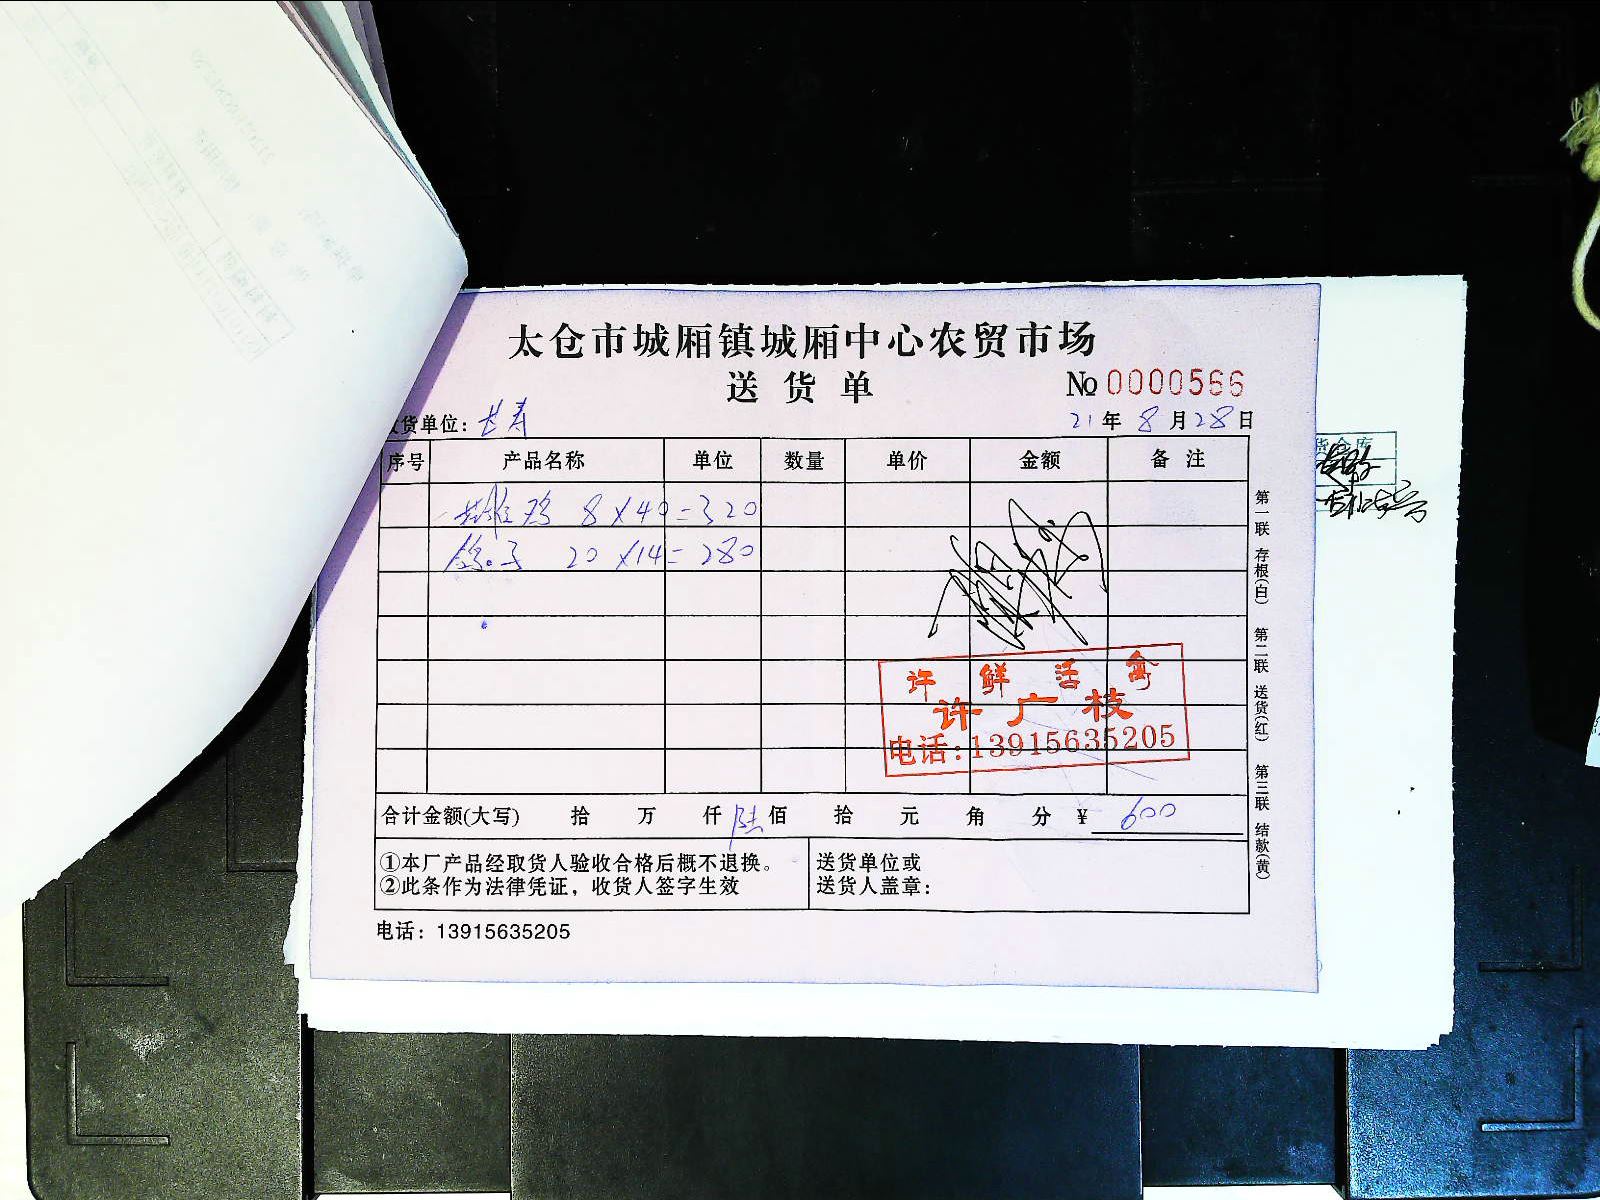 太仓市城厢镇城厢中心农贸市场
送货单
№ 0000566
货单位：长寿
21年8月28日
序号 产品名称 单位 数量 单价 金额 备注
草鸡 8×40=320
鸽子 20×14=280
第一联 存根(白) 第二联 送货(红) 第三联 结款(黄)
许 鲜 活 禽
许广枝
电话:13915635205
合计金额(大写) 拾 万 仟 陆佰 拾 元 角 分 ¥ 600
①本厂产品经取货人验收合格后概不退换。
②此条作为法律凭证，收货人签字生效
送货单位或
送货人盖章：
电话：13915635205